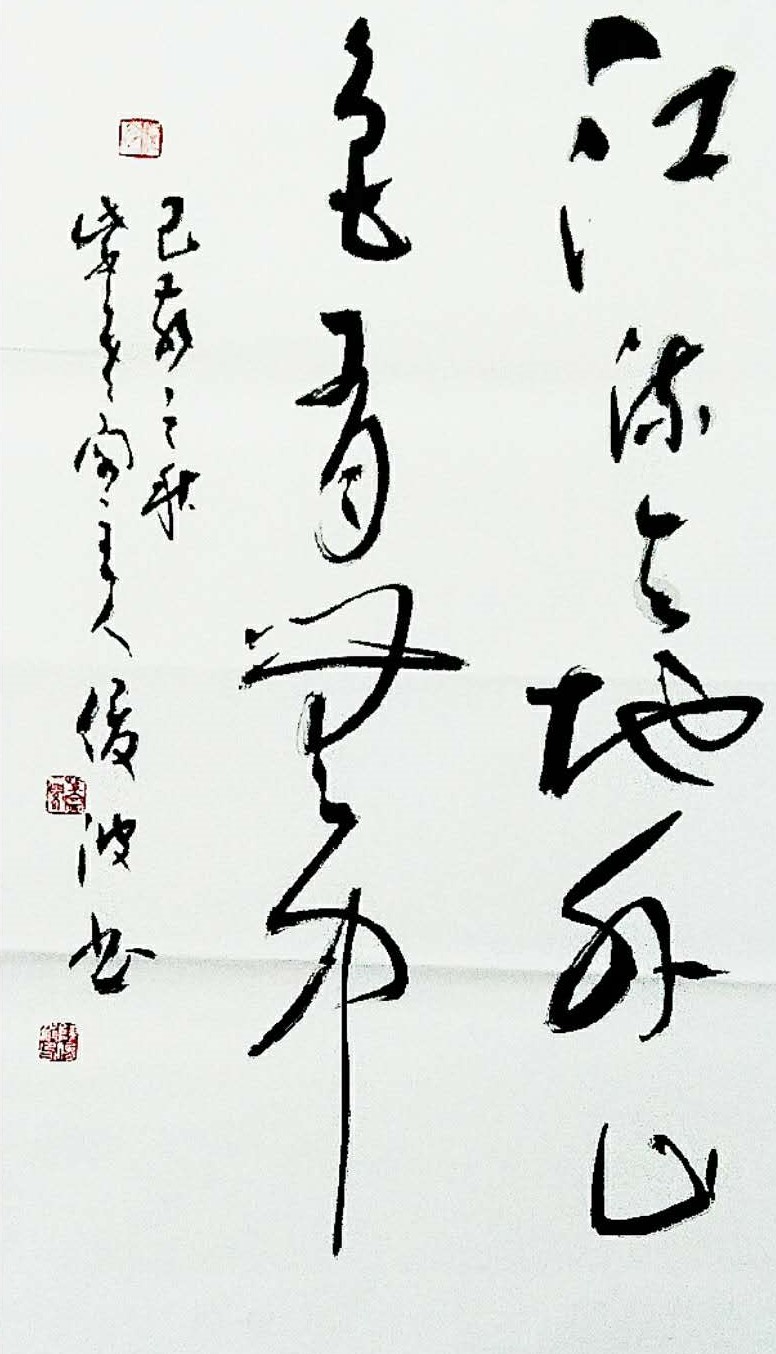 江流天地外山
色有無中
己亥之秋
紫主人俊波书